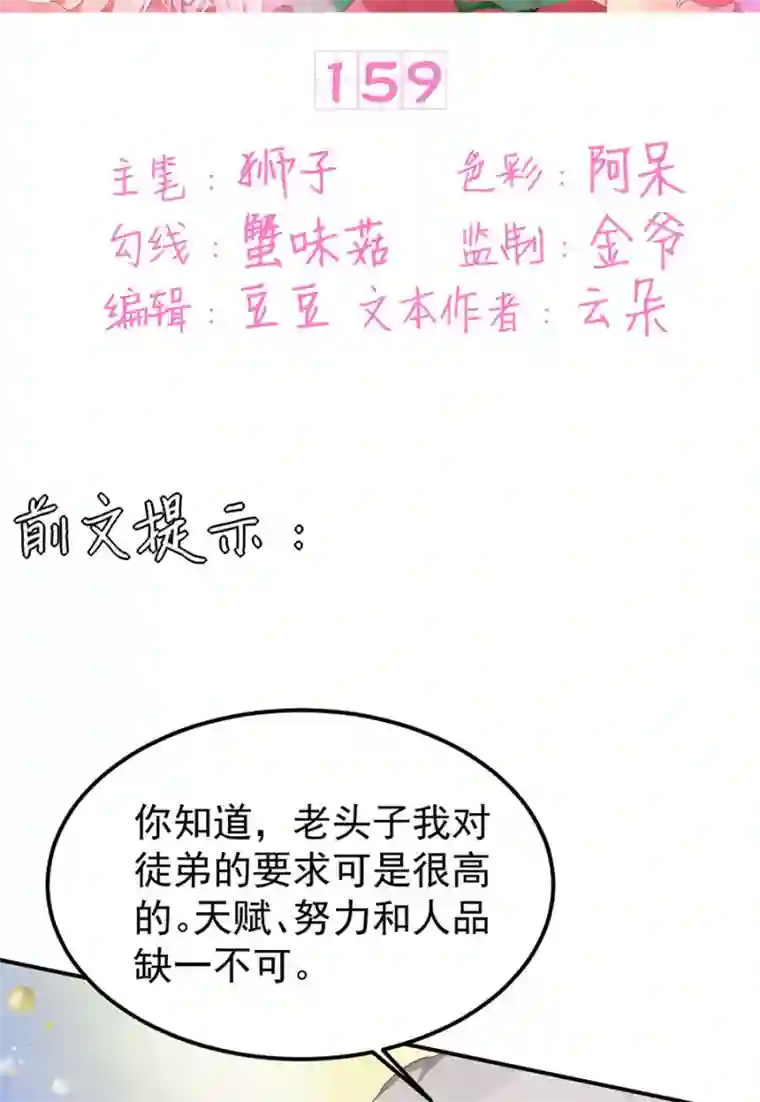 159
主笔：狮子 色彩：阿呆
勾线：蟹味菇 监制：金爷
编辑：豆豆 文本作者：云朵
前文提示：
你知道，老头子我对
徒弟的要求可是很高
的。天赋、努力和人品
缺一不可。